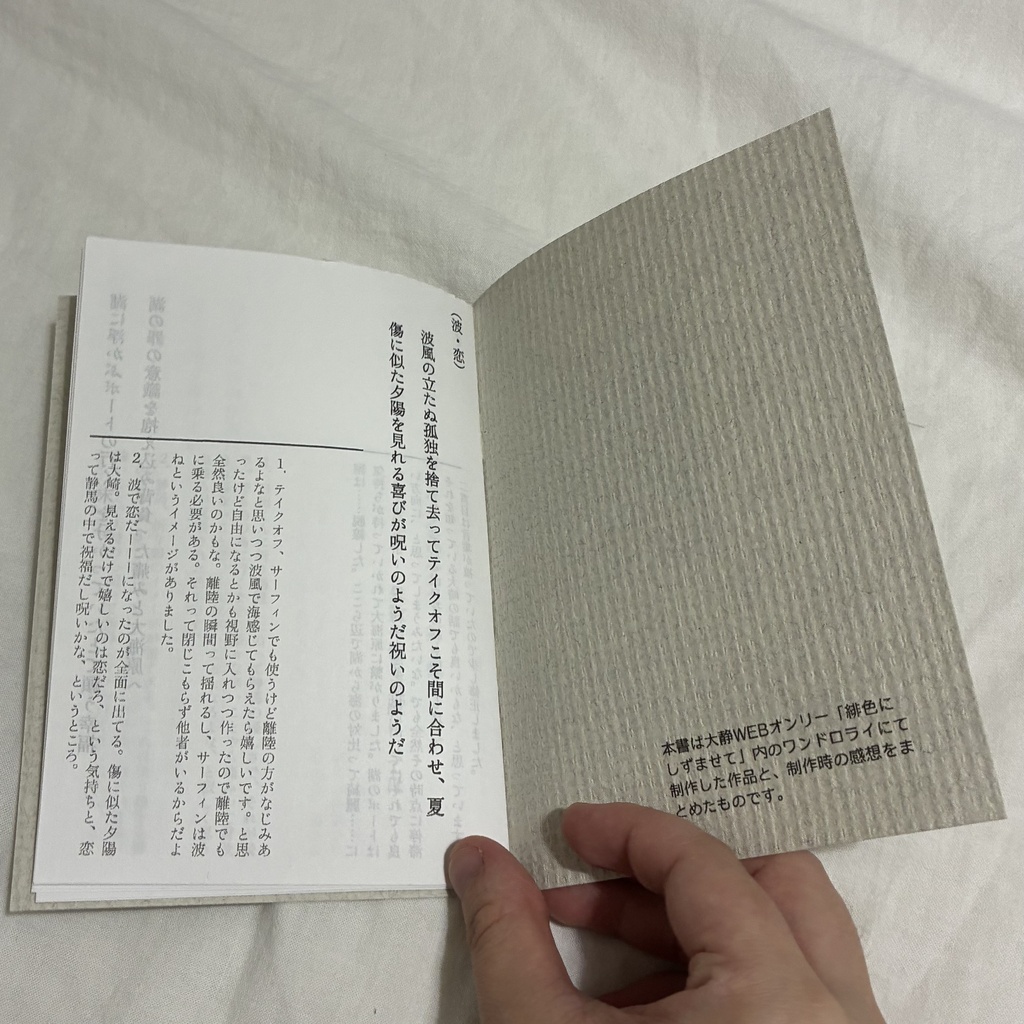 本書は大静WEBオンリー「緋色に
しずませて」内のワンドロライにて
制作した作品と、制作時の感想をま
とめたものです。
（波・恋）
波風の立たぬ孤独を捨て去ってテイクオフこそ間に合わせ、夏
傷に似た夕陽を見れる喜びが呪いのようだ祝いのようだ
1．テイクオフ、サーフィンでも使うけど離陸の方がなじみあ
るよなと思いつつ波風で海感じてもらえたら嬉しいです。と思
ったけど自由になるとかも視野に入れつつ作ったので離陸でも
全然良いのかもな。離陸の瞬間って揺れるし、サーフィンは波
に乗る必要がある。それって閉じこもらず他者がいるからだよ
ねというイメージがありました。
2．波で恋だーーーになったのが全面に出てる。傷に似た夕陽
は大崎。見えるだけで嬉しいのは恋だろ、という気持ちと、恋
って静馬の中で祝福だし呪いかな、というところ。